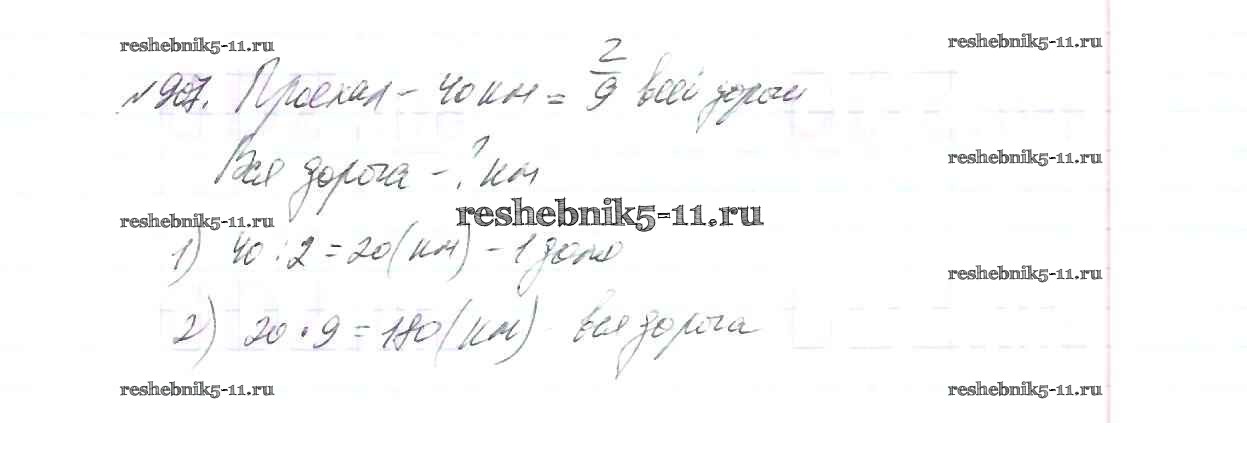 reshebnik5-11.ru reshebnik5-11.ru
№ 907. Проехал - 40 км = 2/9 всей дороги
reshebnik5-11.ru
Вся дорога - ? км
reshebnik5-11.ru reshebnik5-11.ru
1) 40 : 2 = 20 (км) - 1 доля
reshebnik5-11.ru
2) 20 • 9 = 180 (км) вся дорога
reshebnik5-11.ru reshebnik5-11.ru